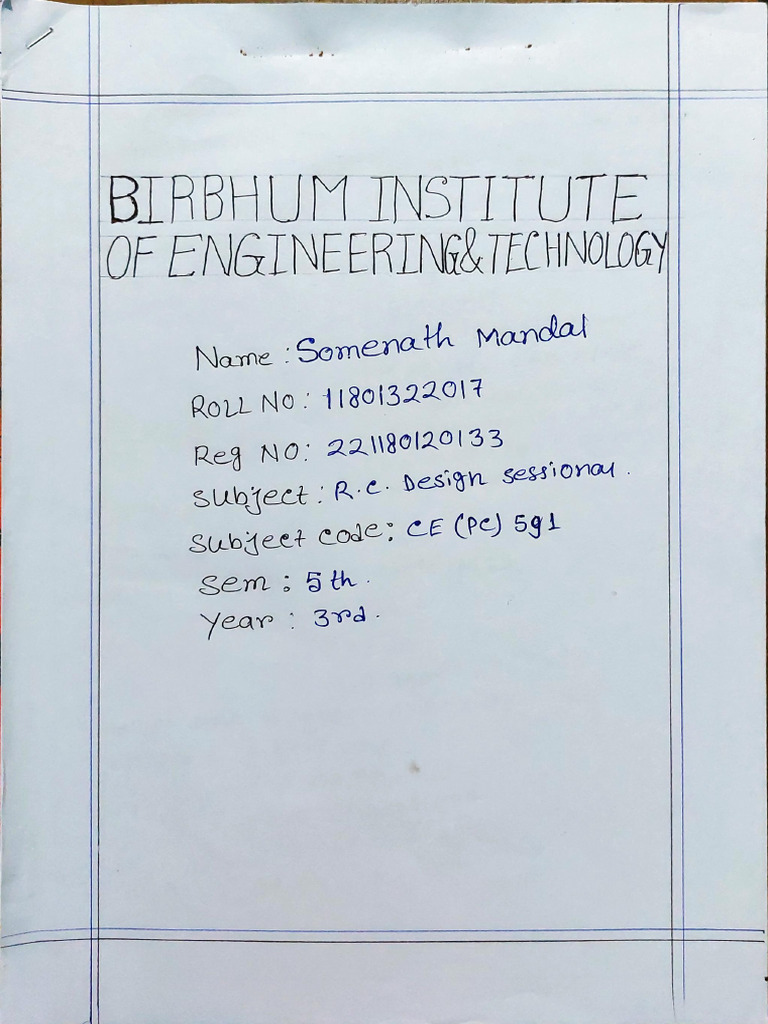 BIRBHUM INSTITUTE
OF ENGINEERING & TECHNOLOGY
Name : Somenath Mandal
ROLL NO : 11801322017
Reg NO : 221180120133
Subject : R.C. Design Sessional.
Subject code : CE (PC) 591
Sem : 5th.
Year : 3rd.